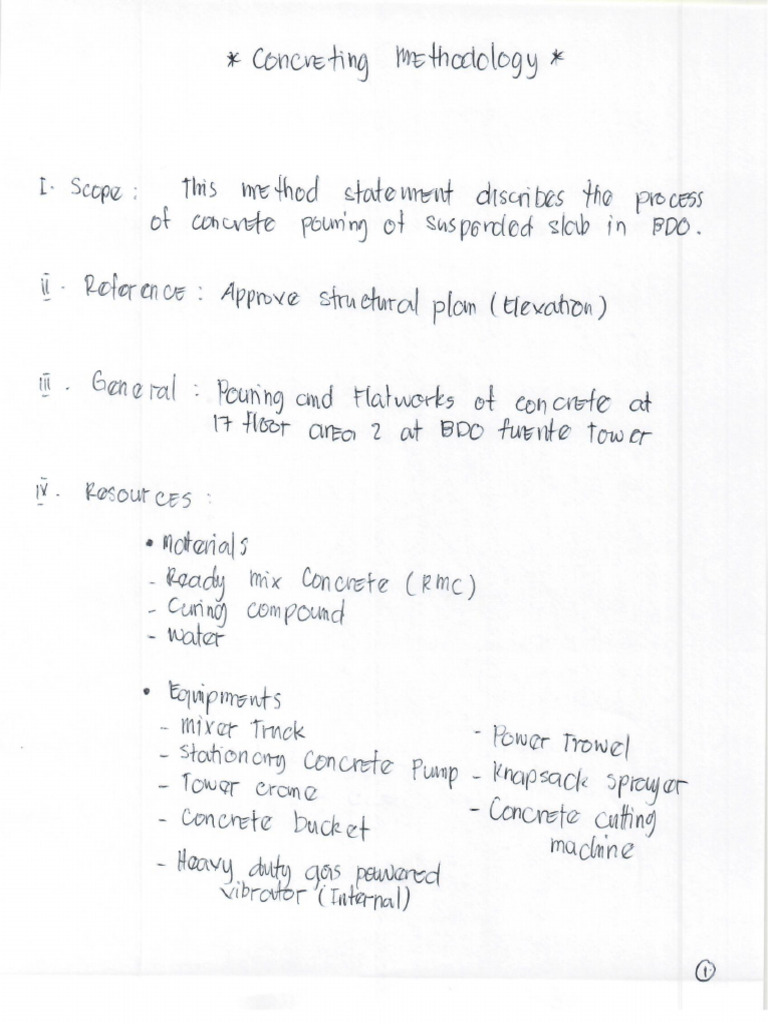 * Concreting Methodology *
I. Scope : This method statement discribes the process
of concrete pouring of suspended slab in BDO.
ii. Reference : Approve structural plan (Elevation)
iii. General : Pouring and Flatworks of concrete at
17 floor area 2 at BDO fuente Tower
iv. Resources :
• Materials
- Ready mix Concrete (RMC)
- Curing compound
- Water
• Equipments
- Mixer Truck
- Stationary Concrete Pump
- Tower crane
- Concrete bucket
- Heavy duty gas powered
vibrator (Internal)
- Power Trowel
- Knapsack sprayer
- Concrete cutting
machine
1